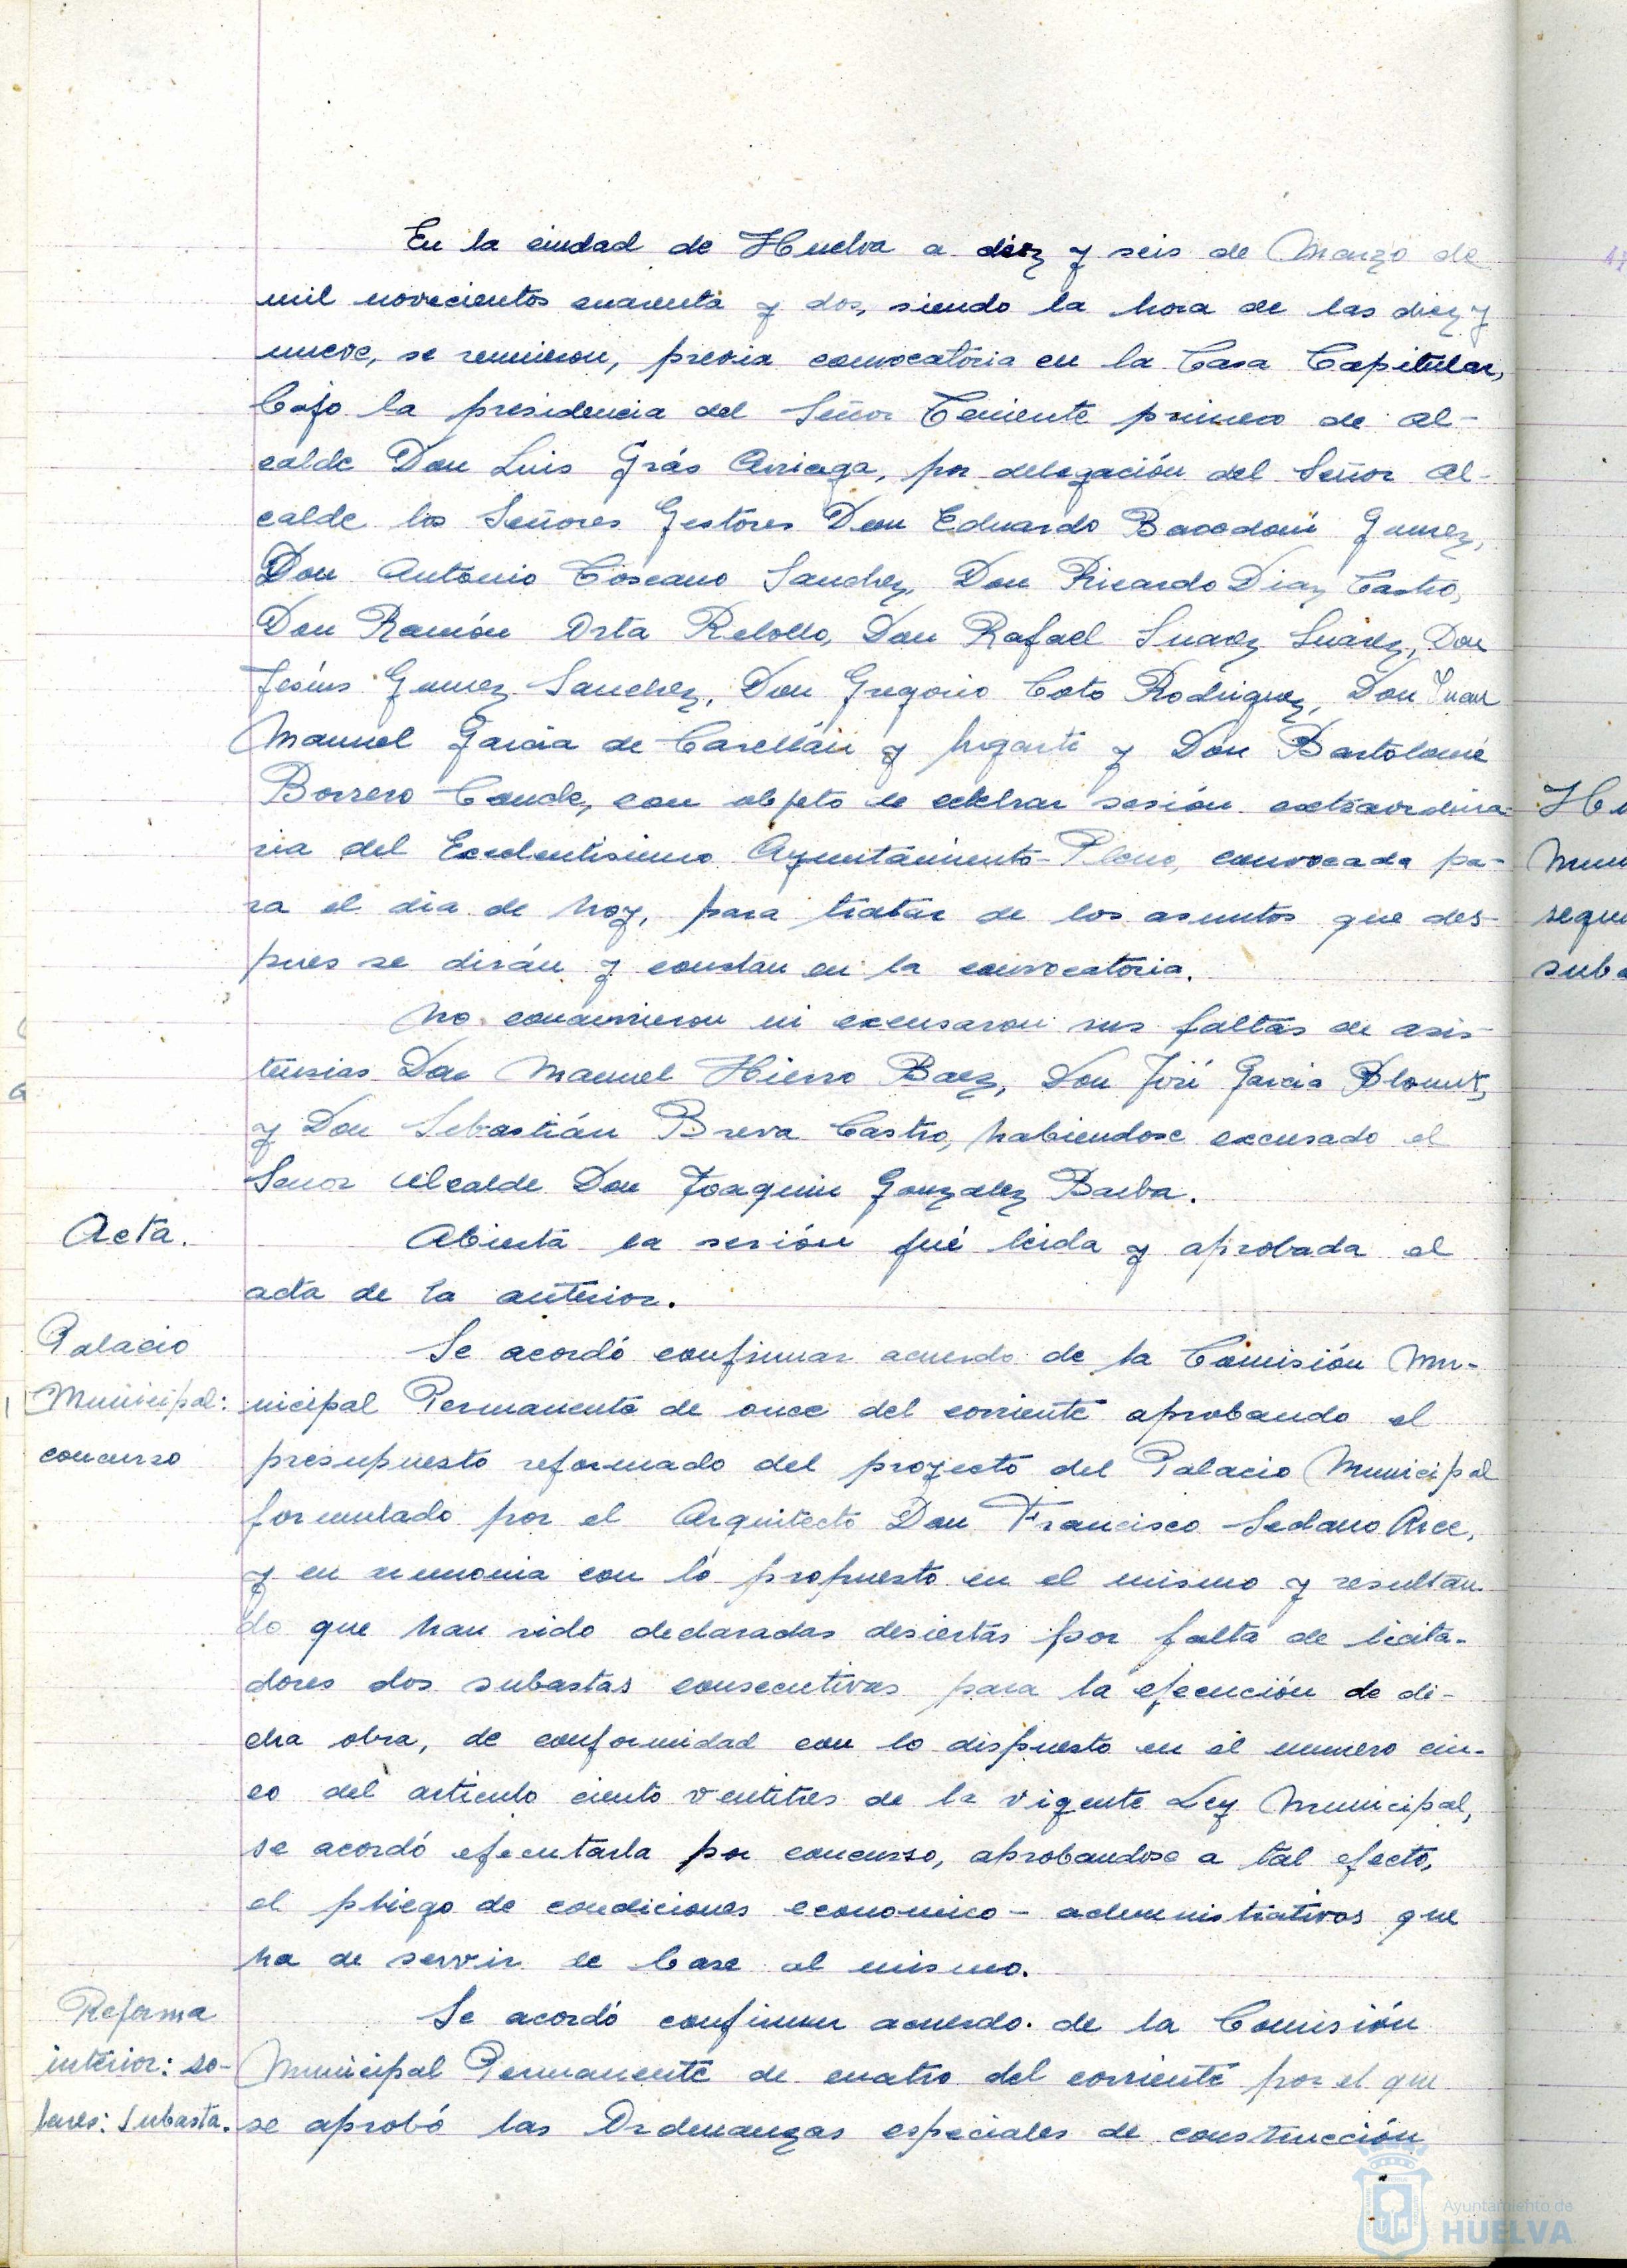 En la ciudad de Huelva a diez y seis de Marzo de
mil novecientos cuarenta y dos, siendo la hora de las diez y
nueve, se reunieron, previa convocatoria en la Casa Capitular,
bajo la presidencia del Señor Teniente primero de Al-
calde Don Luis Grás Arriaga, por delegación del Señor Al-
calde los Señores Gestores Don Eduardo Gumez,
Don Antonio Toscano Sanchez, Don Ricardo Diaz Castro,
Don Ramón Orta Rebollo, Don Rafael Suarez Suarez, Don
Jesús Gumez Sanchez, Don Gregorio Coto Rodriguez, Don Juan
Manuel Garcia de y y Don Bartolomé
Borrero Conde, con objeto de celebrar sesión extraordina-
ria del Excelentisimo Ayuntamiento-Pleno, convocada pa-
ra el dia de hoy, para tratar de los asuntos que des-
pues se dirán y constan en la convocatoria.
No concurrieron ni excusaron sus faltas de asis-
tensias Don Manuel Hierro Baez, Don José Garcia
y Don Sebastián Breva Castro, habiendose excusado el
Señor Alcalde Don Joaquin Gonzalez Barba.
Acta.
Abierta la sesión fué leida y aprobada el
acta de la anterior.
Palacio
Municipal:
concurso
Se acordó confirmar acuerdo de la Comisión Mu-
nicipal Permanente de once del corriente aprobando el
presupuesto reformado del proyecto del Palacio Municipal
formulado por el Arquitecto Don Francisco Sedano Arce,
y en con lo propuesto en el mismo y resultan-
do que han sido declaradas desiertas por falta de licita-
dores dos subastas consecutivas para la ejecución de di-
cha obra, de conformidad con lo dispuesto en el numero cin-
co del articulo ciento ventitres de la vigente Ley Municipal,
se acordó ejecutarla por concurso, aprobandose a tal efecto,
el pliego de condiciones economico-administrativas que
ha de servir de base al mismo.
Reforma
interior: so-
lares: Subasta.
Se acordó confirmar acuerdo de la Comisión
Municipal Permanente de cuatro del corriente por el que
se aprobó las Ordenanzas especiales de construcción
Ayuntamiento de
HUELVA